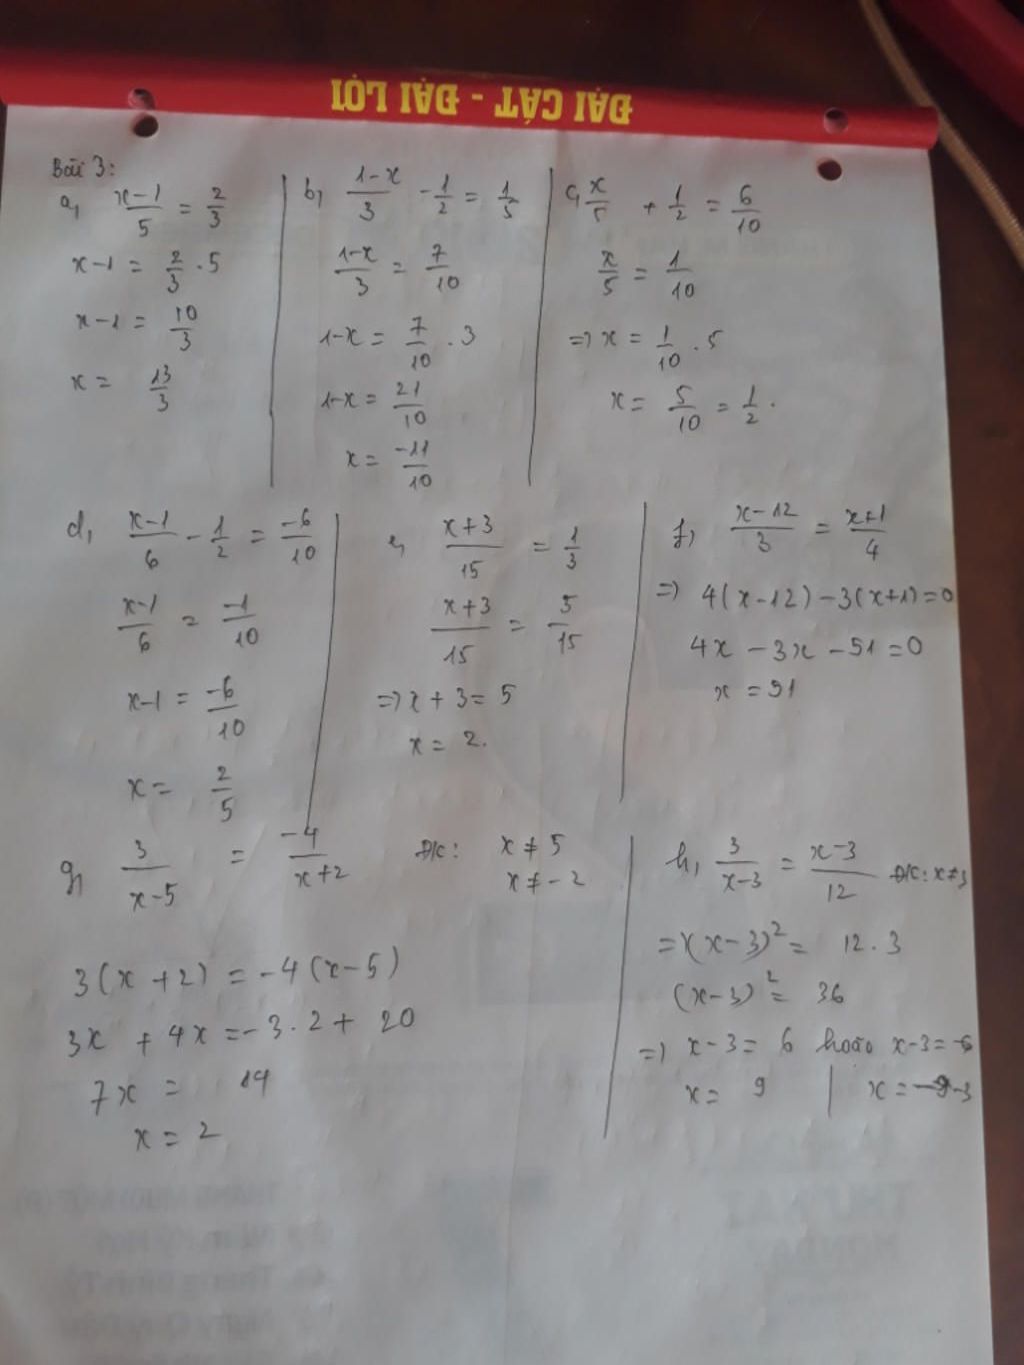 ĐẠI CÁT - ĐẠI LỢI
Bài 3:
a, (x-1)/5 = 2/3
x-1 = 2/3 . 5
x-1 = 10/3
x = 13/3
b, (1-x)/3 - 1/2 = 1/5
(1-x)/3 = 7/10
1-x = 7/10 . 3
1-x = 21/10
x = -11/10
c, x/5 + 1/2 = 6/10
x/5 = 1/10
=> x = 1/10 . 5
x = 5/10 = 1/2 .
d, (x-1)/6 - 1/2 = -6/10
(x-1)/6 = -1/10
x-1 = -6/10
x = 2/5
e, (x+3)/15 = 1/3
(x+3)/15 = 5/15
=> x + 3 = 5
x = 2.
f, (x-12)/3 = (x+1)/4
=> 4(x-12) - 3(x+1) = 0
4x - 3x - 51 = 0
x = 51
g, 3/(x-5) = -4/(x+2) ĐK: x ≠ 5
x ≠ -2
3(x+2) = -4(x-5)
3x + 4x = -3.2 + 20
7x = 14
x = 2
h, 3/(x-3) = (x-3)/12 ĐK: x ≠ 3
=> (x-3)² = 12.3
(x-3)² = 36
=> x-3 = 6 hoặc x-3 = -6
x = 9 | x = -3